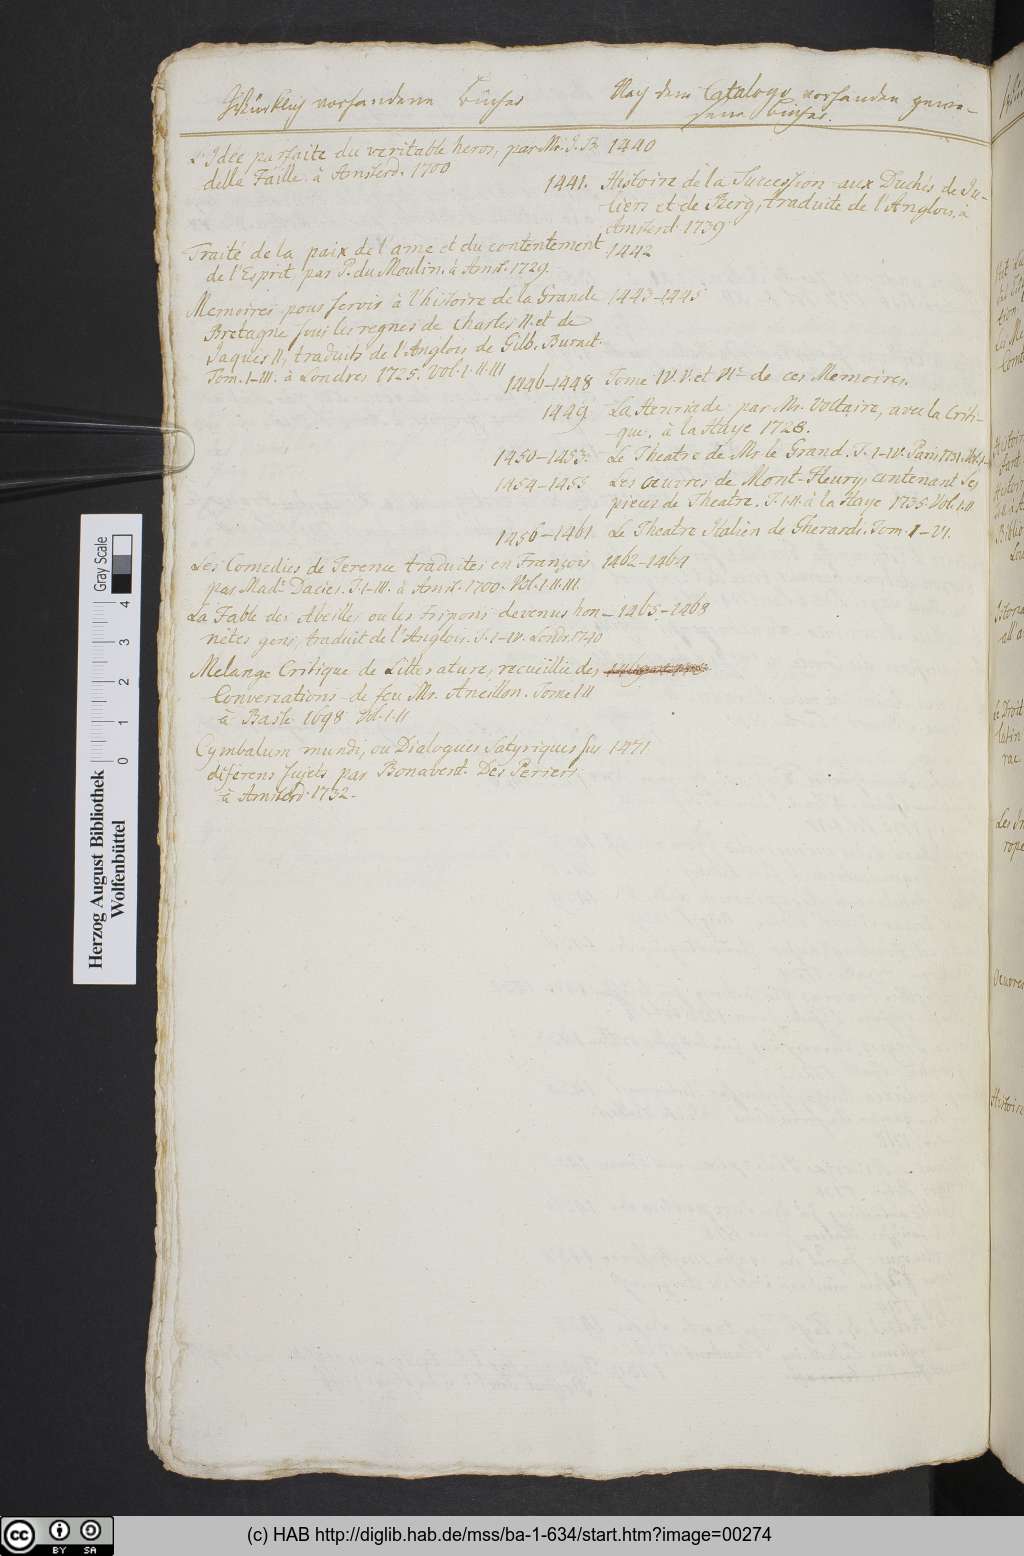 Würklich vorhandene Bücher
Nach dem Catalogo vorhanden gewe-
sene Bücher.
L'Idée parfaite du veritable heros, par Mr. J. B. 1440
della Faille. à Amsterd. 1700
1441. Histoire de la Succession aux Duchés de Ju-
liers et de Berg, traduite de l'Anglois, à
Amsterd. 1739
Traité de la paix de l'ame et du contentement 1442
de l'Esprit, par P. du Moulin. à Amst. 1729.
Memoires pour servir à l'histoire de la Grande 1443-1445
Bretagne sous les regnes de Charles II. et de
Jaques II, traduits de l'Anglois de Gilb. Burnet.
Tom. I-III. à Londres 1725. Vol. I. II. III
1446-1448 Tome IV. V. et VI. de ces Memoires.
1449 La Henriade par Mr. Voltaire, avec la Criti-
que. à la Haye 1728.
1450-1453. Le Theatre de Mr. le Grand. T. I-IV. Paris 1731.
1454-1455 Les Oeuvres de Mont-Fleury, contenant ses
pieces de Theatre. T. I. II. à la Haye 1735. Vol. I. II
1456-1461 Le Theatre Italien de Gherardi. Tom. I-VI.
Les Comedies de Terence traduites en François 1462-1464
par Mad. Dacier. T. I-III. à Amst. 1700. Vol. I. II. III.
La Fable des Abeilles ou les Fripons devenus hon- 1465-1468
nêtes gens, traduit de l'Anglois. T. I-IV. Londr. 1740
Melange Critique de Litterature, recueillie des
Conversations de feu Mr. Ancillon. Tome I. II
à Basle 1698 Vol. I. II
Cymbalum mundi, ou Dialogues Satyriques sur 1471
diferens sujets par Bonavent. Des Periers
à Amsterd. 1732.
Herzog August Bibliothek
Wolfenbüttel
Gray Scale
0 1 2 3 4
(c) HAB http://diglib.hab.de/mss/ba-1-634/start.htm?image=00274
cc BY SA